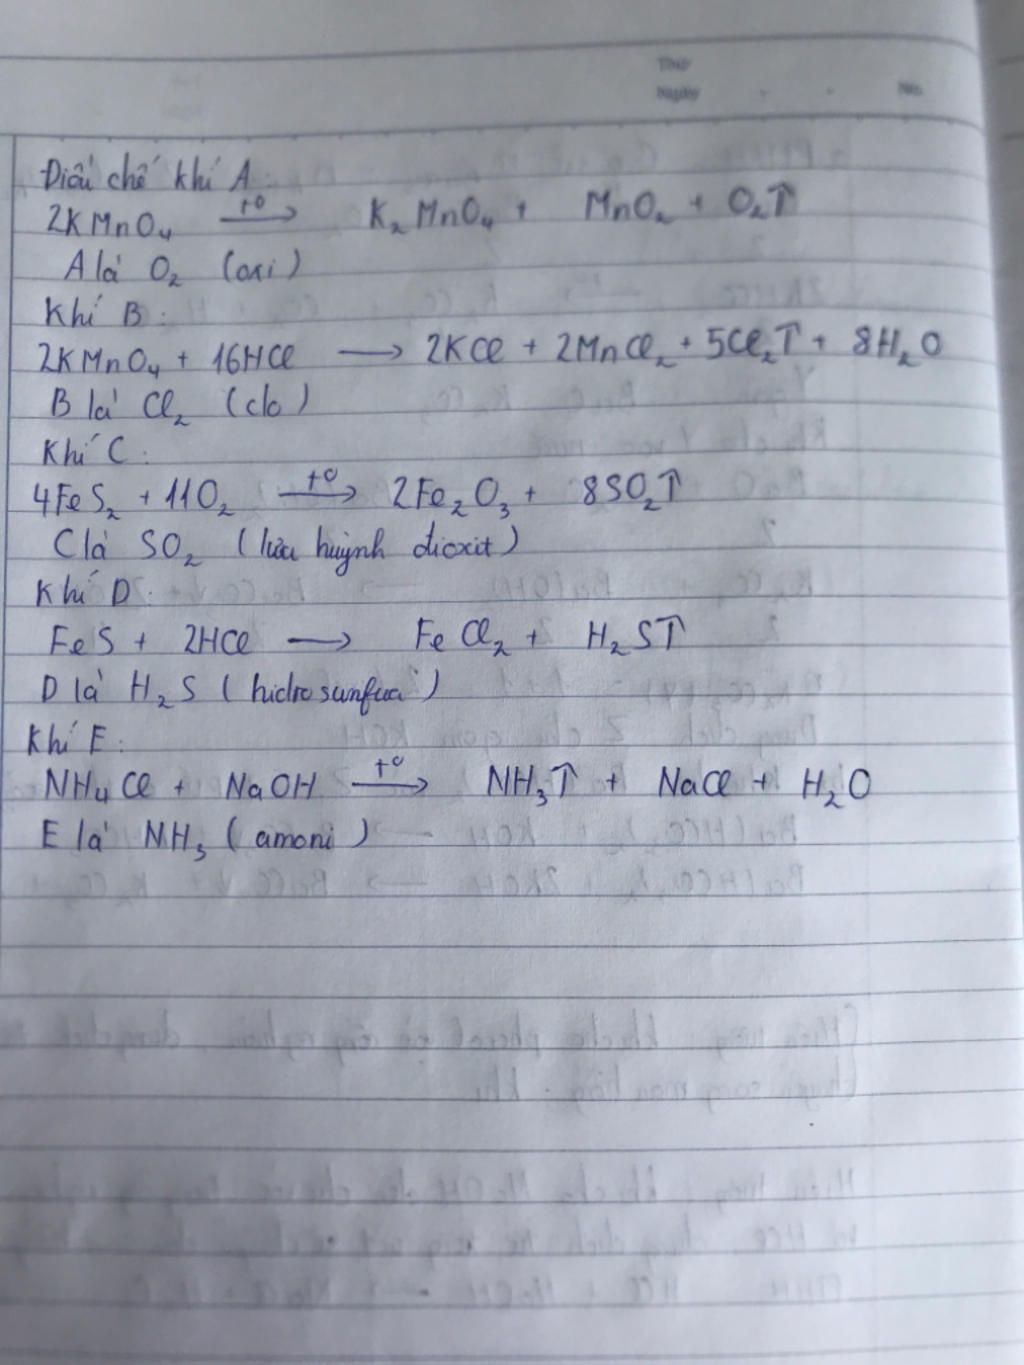 Thứ
Ngày No.
Điều chế khí A:
2KMnO₄ —t°→ K₂MnO₄ + MnO₂ + O₂↑
A là O₂ (oxi)
Khí B:
2KMnO₄ + 16HCl → 2KCl + 2MnCl₂ + 5Cl₂↑ + 8H₂O
B là Cl₂ (clo)
Khí C:
4FeS₂ + 11O₂ —t°→ 2Fe₂O₃ + 8SO₂↑
C là SO₂ (lưu huỳnh đioxit)
Khí D:
FeS + 2HCl → FeCl₂ + H₂S↑
D là H₂S (hidro sunfua)
Khí E:
NH₄Cl + NaOH —t°→ NH₃↑ + NaCl + H₂O
E là NH₃ (amoni)